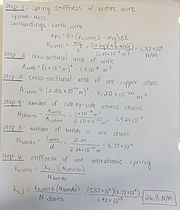 Step 1: Spring stiffness of entire wire
System: Mass
Surroundings: Earth, wire
Δpy = 0 = (ks,wire s - mg)Δt
ks,wire = mg/s = = 5.87×10⁴ N/m
Step 2: cross-sectional area of wire
Awire = (1×10⁻³ m)² = 1×10⁻⁶ m²
Step 3: cross-sectional area of one copper atom
Aatom = (2.28×10⁻¹⁰ m)² = 5.20×10⁻²⁰ m²
Step 4: Number of side-by-side atomic chains
Nchains = Awire/Aatom = 1×10⁻⁶ m²/5.20×10⁻²⁰ m² = 1.92×10¹³
Step 5: Number of bonds in one chain
Nbonds = L/d = 2 m/2.28×10⁻¹⁰ m = 8.77×10⁹
Step 6: Stiffness of one interatomic spring
ks,wire = (ks,i)(Nchains)/Nbonds
ks,i = ks,wire(Nbonds)/Nchains = = 26.8 N/m